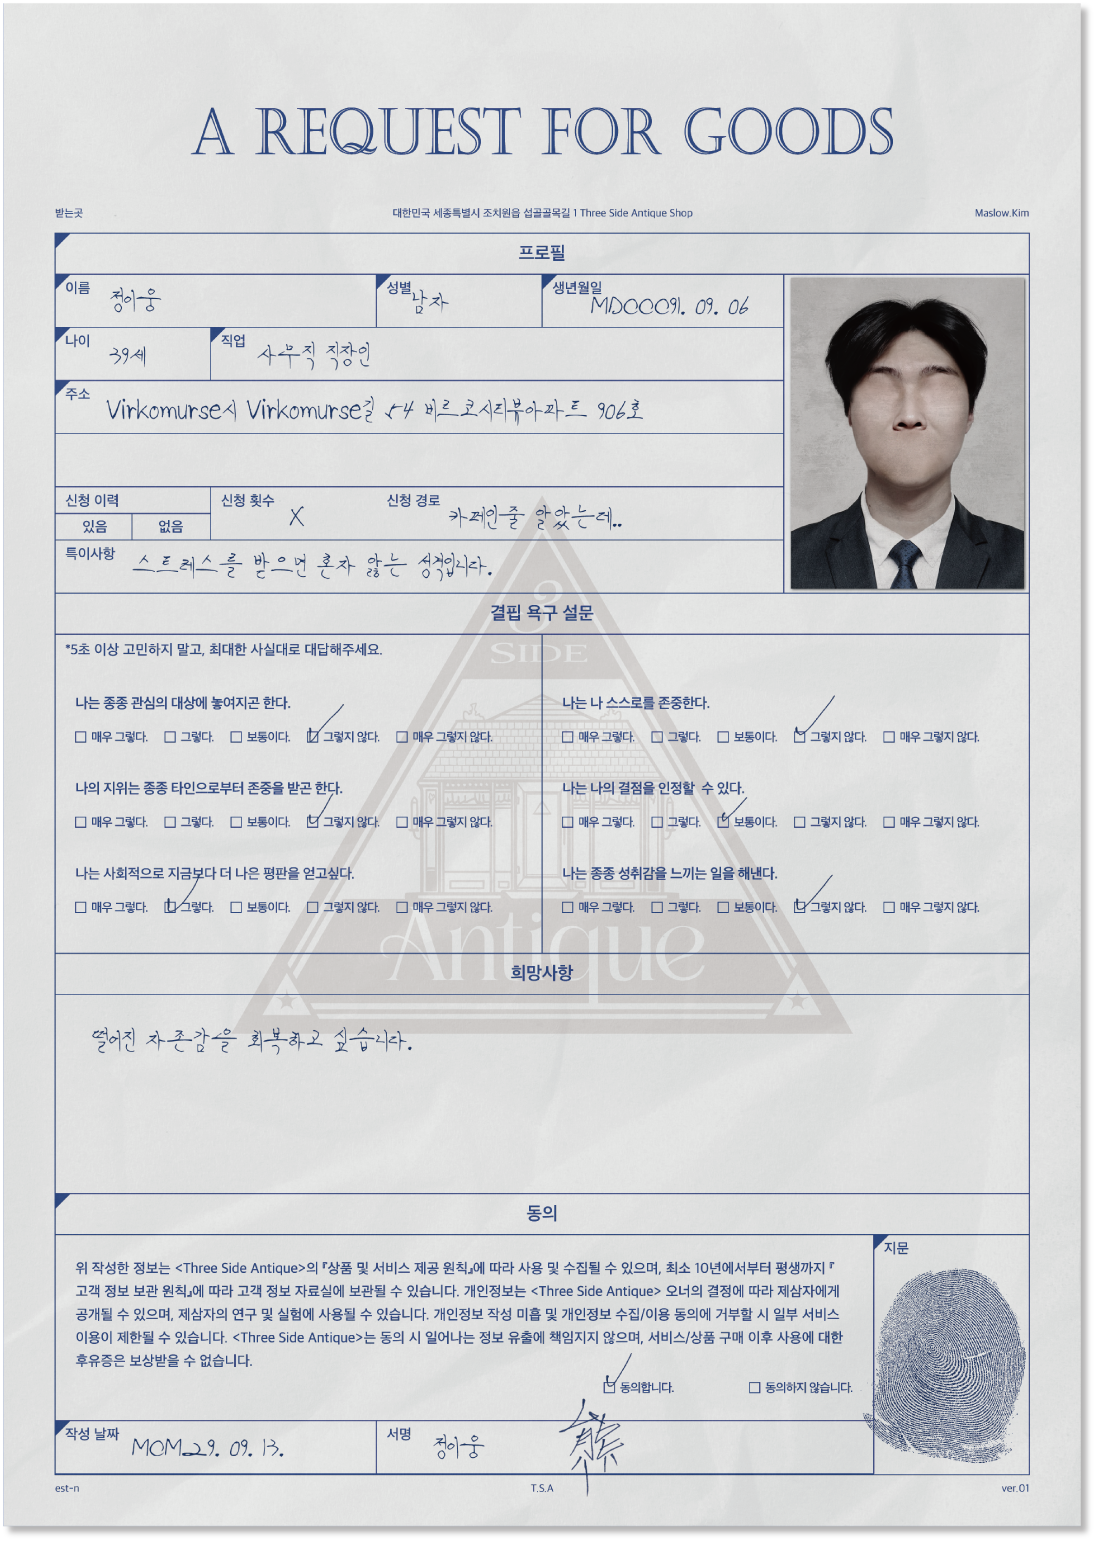 A REQUEST FOR GOODS
받는곳 대한민국 세종특별시 조치원읍 섭골골목길 1 Three Side Antique Shop Maslow.Kim
프로필
이름 정이웅 성별 남자 생년월일 MDCCC91. 09. 06
나이 39세 직업 사무직 직장인
주소 Virkomurse시 Virkomurse길 54 비르코시티뷰아파트 906호
신청 이력 신청 횟수 X 신청 경로 카페인줄 알았는데..
있음 없음
특이사항 스트레스를 받으면 혼자 앓는 성격입니다.
결핍 욕구 설문
3
SIDE
*5초 이상 고민하지 말고, 최대한 사실대로 대답해주세요.
나는 종종 관심의 대상에 놓여지곤 한다. 나는 나 스스로를 존중한다.
매우 그렇다. 그렇다. 보통이다. 그렇지 않다. 매우 그렇지 않다. 매우 그렇다. 그렇다. 보통이다. 그렇지 않다. 매우 그렇지 않다.
나의 지위는 종종 타인으로부터 존중을 받곤 한다. 나는 나의 결점을 인정할 수 있다.
매우 그렇다. 그렇다. 보통이다. 그렇지 않다. 매우 그렇지 않다. 매우 그렇다. 그렇다. 보통이다. 그렇지 않다. 매우 그렇지 않다.
나는 사회적으로 지금보다 더 나은 평판을 얻고싶다. 나는 종종 성취감을 느끼는 일을 해낸다.
매우 그렇다. 그렇다. 보통이다. 그렇지 않다. 매우 그렇지 않다. 매우 그렇다. 그렇다. 보통이다. 그렇지 않다. 매우 그렇지 않다.
Antique
희망사항
떨어진 자존감을 회복하고 싶습니다.
동의
지문
위 작성한 정보는 <Three Side Antique>의 『상품 및 서비스 제공 원칙』에 따라 사용 및 수집될 수 있으며, 최소 10년에서부터 평생까지 『
고객 정보 보관 원칙』에 따라 고객 정보 자료실에 보관될 수 있습니다. 개인정보는 <Three Side Antique> 오너의 결정에 따라 제삼자에게
공개될 수 있으며, 제삼자의 연구 및 실험에 사용될 수 있습니다. 개인정보 작성 미흡 및 개인정보 수집/이용 동의에 거부할 시 일부 서비스
이용이 제한될 수 있습니다. <Three Side Antique>는 동의 시 일어나는 정보 유출에 책임지지 않으며, 서비스/상품 구매 이후 사용에 대한
후유증은 보상받을 수 없습니다.
동의합니다. 동의하지 않습니다.
작성 날짜 MCM29. 09. 13. 서명 정이웅 熊
est-n T.S.A ver.01